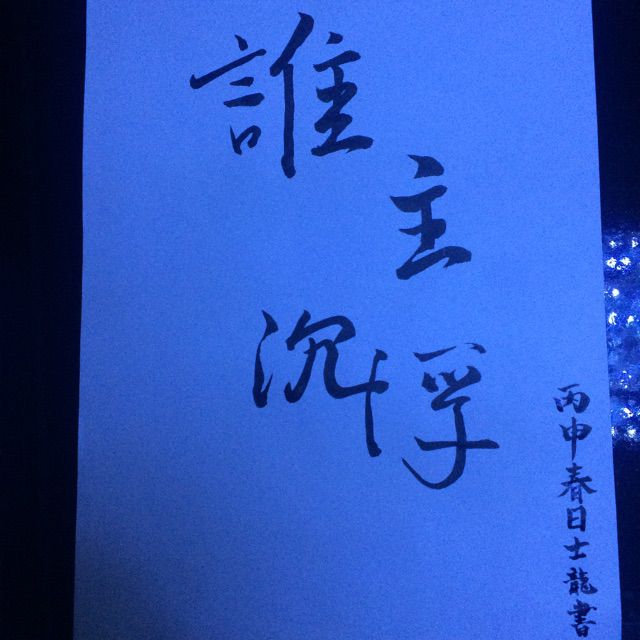 誰主沉浮
丙申春日士龍書